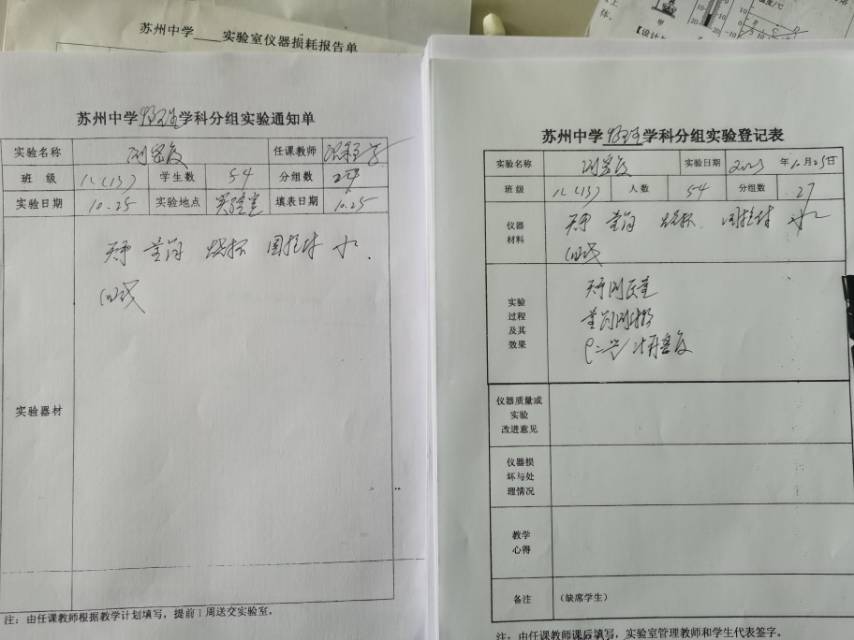 苏州中学____实验室仪器损耗报告单
苏州中学物理学科分组实验通知单
实验名称 测密度 任课教师
班 级 八(13) 学生数 54 分组数 27
实验日期 10.25 实验地点 实验室 填表日期 10.25
天平 量筒 烧杯 固拉球 水
细线
实验器材
注：由任课教师根据教学计划填写，提前1周送交实验室。
苏州中学物理学科分组实验登记表
实验名称 测密度 实验日期 2023年10月25日
班 级 八(13) 人数 54 分组数 27
仪器
材料
天平 量筒 烧杯 水
细线
实验
过程
及其
效果
天平测质量
量筒测体积
计算密度
仪器质量或
实验
改进意见
仪器损
坏与处
理情况
教学
心得
备注 (缺席学生)
注：由任课教师课后填写，实验室管理教师和学生代表签字。